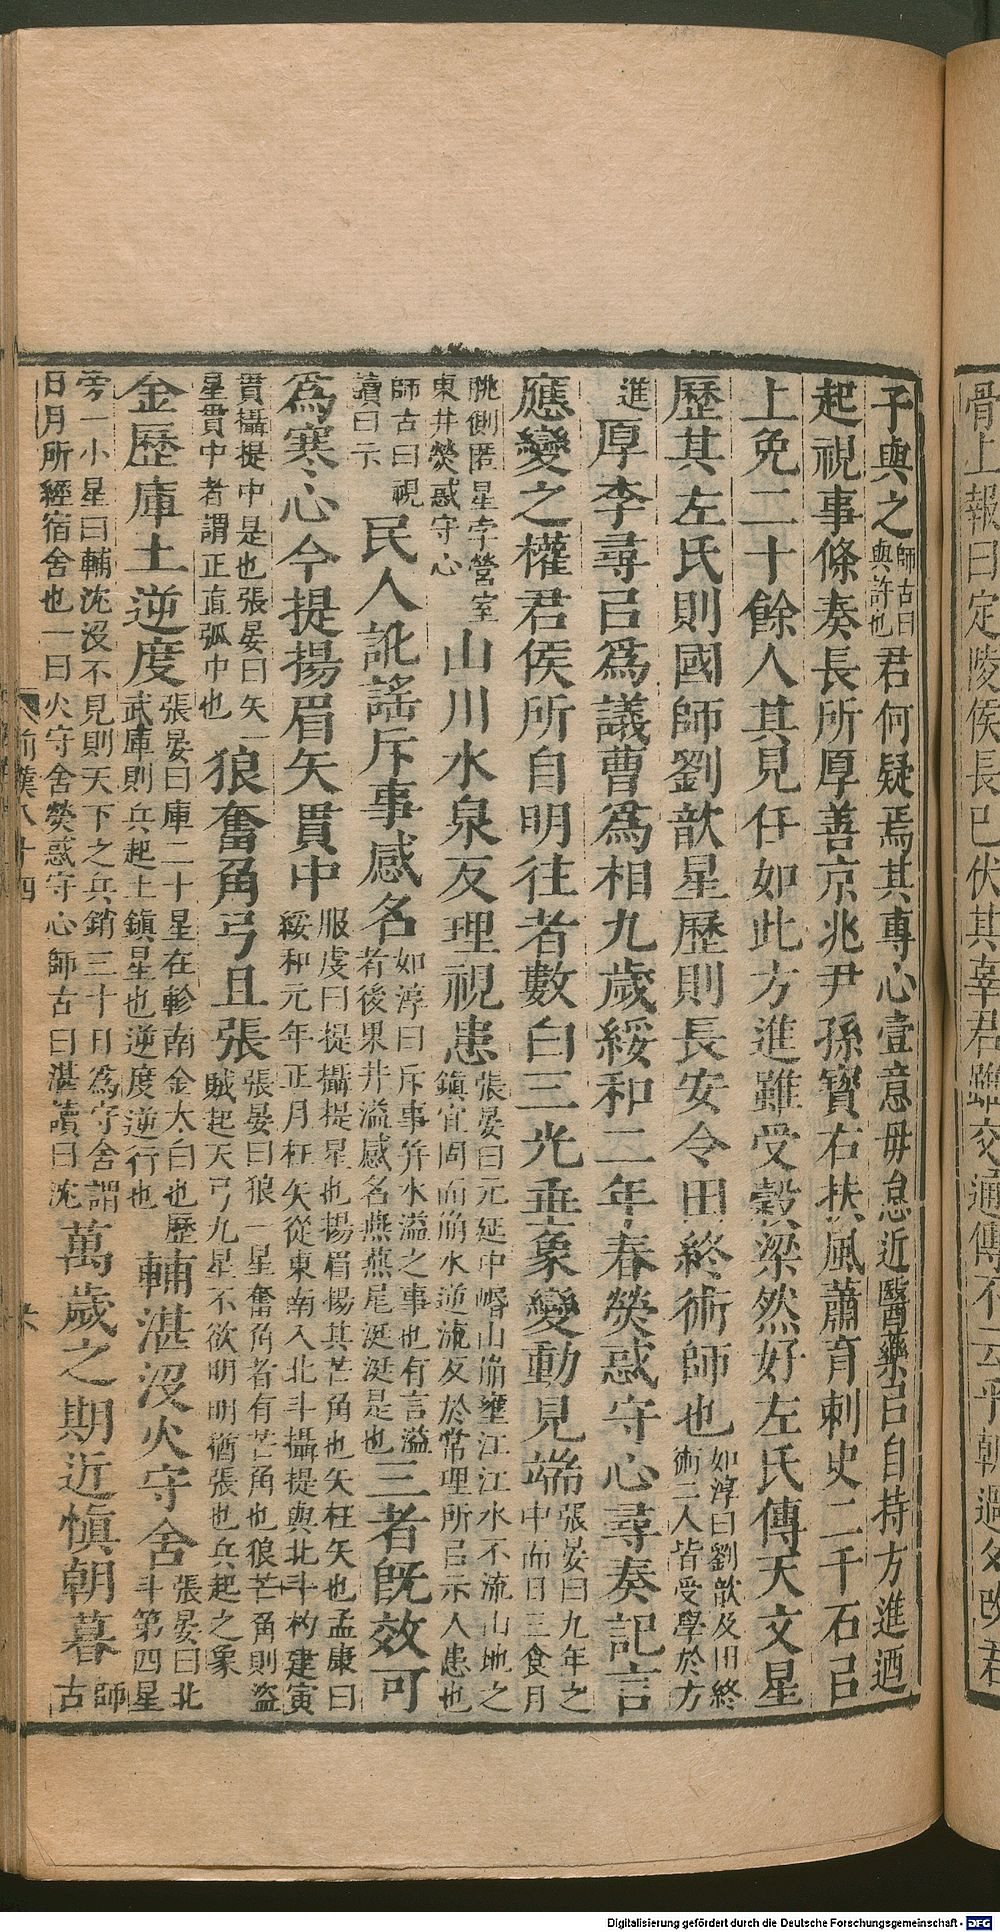 骨上報曰定陵侯長已伏其辜君雖交通傳不云乎朝過夕改君
子與之師古曰與許也君何疑焉其專心壹意毋怠近醫藥㠯自持方進迺
起視事條奏長所厚善京兆尹孫寶右扶風蕭育刺史二千石㠯
上免二十餘人其見任如此方進雖受穀梁然好左氏傳天文星
歷其左氏則國師劉歆星歷則長安令田終術師也如淳曰劉歆及田終術二人皆受學於方
進厚李尋㠯爲議曹爲相九歲綏和二年春熒惑守心尋奏記言
應變之權君侯所自明往者數白三光垂象變動見端張晏曰九年之中而日三食月
朓側匿星孛營室東井熒惑守心山川水泉反理視患張晏曰元延中㟭山崩壅江江水不流山地之鎮宜固而崩水逆流反於常理所㠯示人患也
師古曰視讀曰示民人訛謠斥事感名如淳曰斥事井水溢之事也有言溢者後果井溢感名燕燕尾涎涎是也三者既效可
爲寒心今提揚眉矢貫中服虔曰提攝提星也揚眉揚其芒角也矢枉矢也孟康曰綏和元年正月枉矢從東南入北斗攝提與北斗杓建寅
貫攝提中是也張晏曰矢一星貫中者謂正直弧中也狼奮角弓且張張晏曰狼一星奮角者有芒角也狼芒角則盜賊起天弓九星不欲明明猶張也兵起之象
金歷庫土逆度張晏曰庫二十星在軫南金太白也歷武庫則兵起土鎮星也逆度逆行也輔湛沒火守舍張晏曰北斗第四星
旁一小星曰輔沈沒不見則天下之兵銷三十日爲守舍謂日月所經宿舍也一曰火守舍熒惑守心師古曰湛讀曰沈萬歲之期近慎朝暮師古
前漢八十四
Digitalisierung gefördert durch die Deutsche Forschungsgemeinschaft - DFG